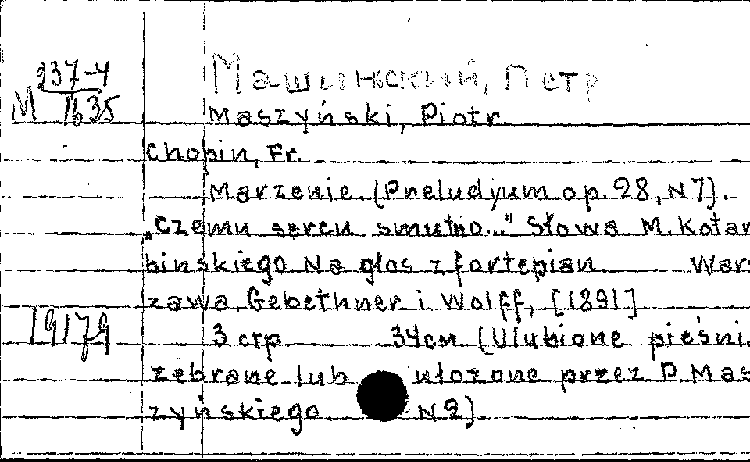 М 237-4
1635
Машинский, Петр
Maszyński, Piotr.
Chopin, Fr.
Marzenie. (Preludyum op. 28, N 7).
"Czemu sercu smutno..." Słowa M. Kotar
bińskiego Na głos z fortepian War
zawa, Gebethner i Wolff, [1891]
19179
3 стр 34см (Ulubione pieśni.
zebrane lub ułożone przez P. Mas
zyńskiego N 2)